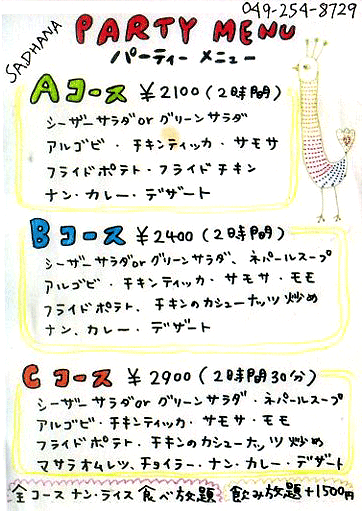 049-254-8729
SADHANA
PARTY MENU
パーティー メニュー
Aコース ¥2100(2時間)
シーザーサラダ or グリーンサラダ
アルゴビ・チキンティッカ・サモサ
フライドポテト・フライドチキン
ナン・カレー・デザート
Bコース ¥2400(2時間)
シーザーサラダ or グリーンサラダ、ネパールスープ
アルゴビ・チキンティッカ・サモサ・モモ
フライドポテト、チキンのカシューナッツ炒め
ナン、カレー・デザート
Cコース ¥2900(2時間30分)
シーザーサラダ or グリーンサラダ・ネパールスープ
アルゴビ・チキンティッカ・サモサ・モモ
フライドポテト・チキンのカシューナッツ炒め
マサラオムレツ、チョイラー・ナン・カレー・デザート
全コース ナン・ライス 食べ放題 飲み放題+1500円